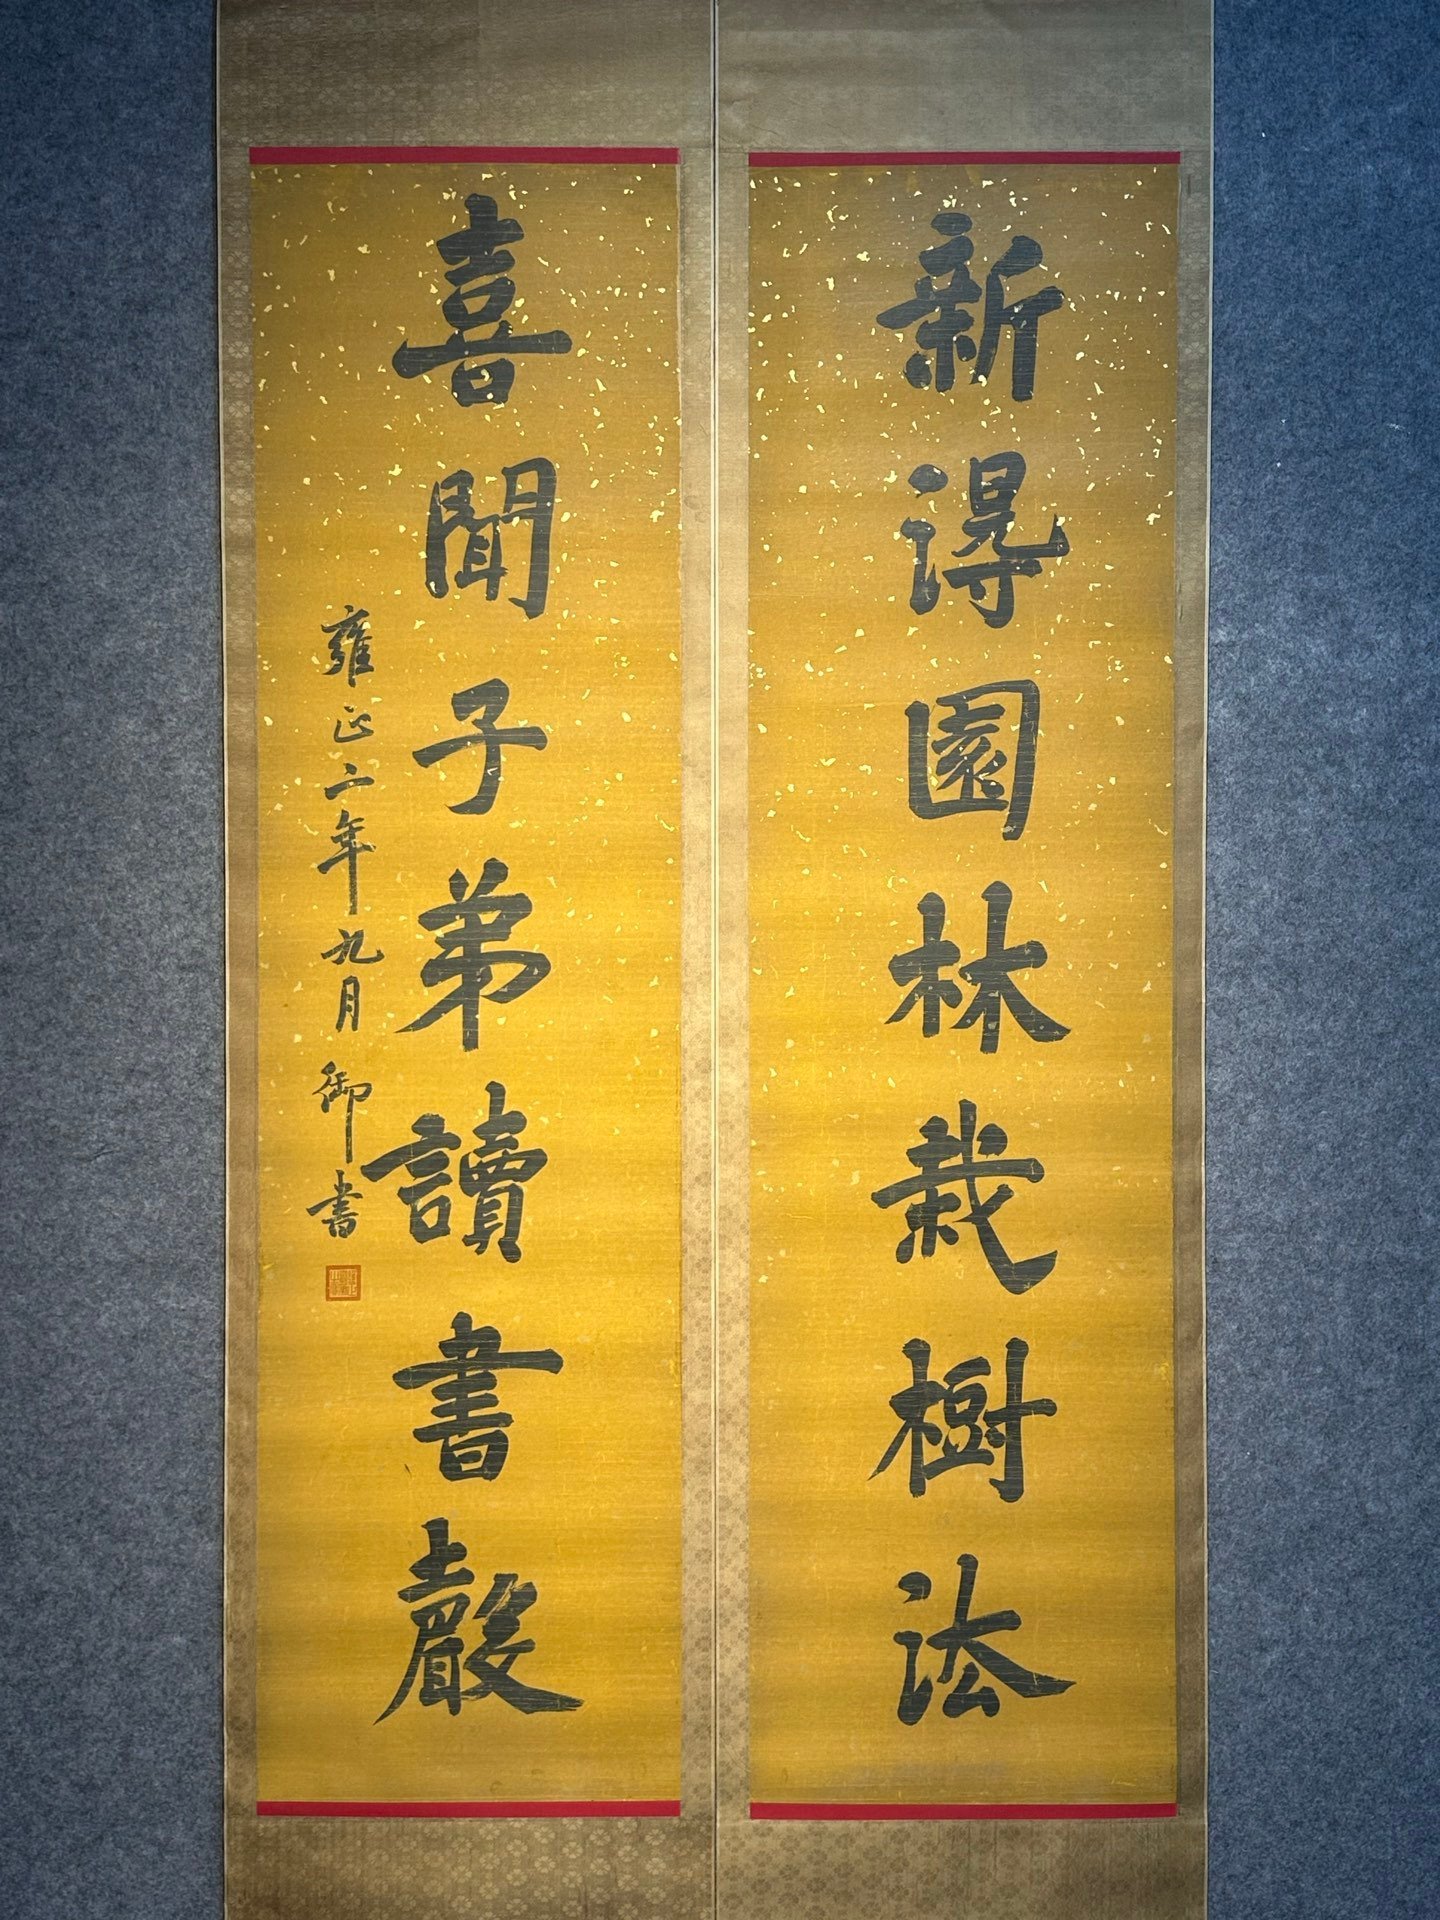 新得園林栽樹法
喜聞子弟讀書聲
雍正二年九月御書